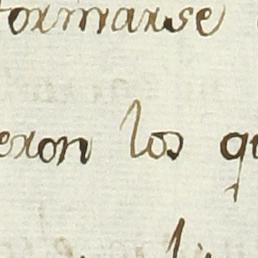 formarse
eron los qu